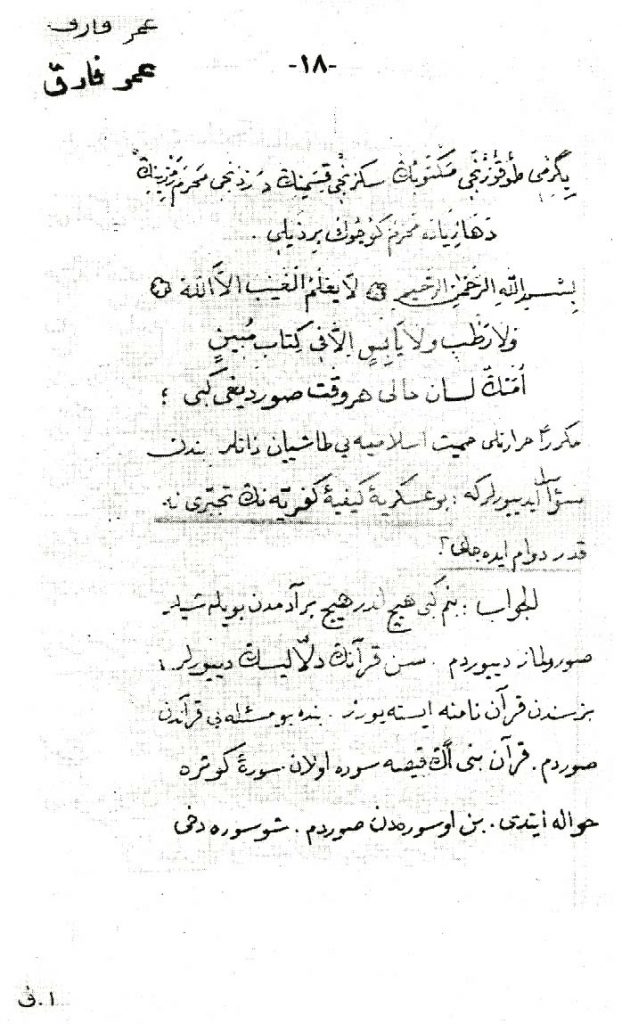 عمر فاروق
عمر فاروق
-١٨-
يگرمى طوقوزنجى مكتوبك سكزنجى قسمنك دردنجى محرم رمزينك
دها زياده محرم كوچوك بر ذيلى .
بِسْمِ اللّٰهِ الرَّحْمٰنِ الرَّحِيمِ ۞ لَا يَعْلَمُ الْغَيْبَ اِلَّا اللّٰهُ ۞
وَلَا رَطْبٍ وَلَا يَابِسٍ اِلَّا فِى كِتَابٍ مُبِينٍ
امتك لسان حالى هر وقت صورديغى كبى ؛
مكرراً حرارتلى حميت اسلاميه يى طاشييان ذاتلر بندن
سؤال ايدييورلركه : بو عسكريۀ كيفيۀ كفريه نك تجبرى نه
قدر دوام ايده جك ؟
الجواب : بنم كبى هيچ اندر هيچ بر آدمدن بويله شيلر
صورولماز دييوردم . سن قرآنك دلّاليسك دييورلر ؛
بز سندن قرآن نامنه ايسته يورز . بنده بو مسئله يى قرآندن
صوردم . قرآن بنى اڭ قيصه سوره اولان سورۀ كوثره
حواله ايتدى . بن او سوره دن صوردم . شو سوره دخى
ا . ف